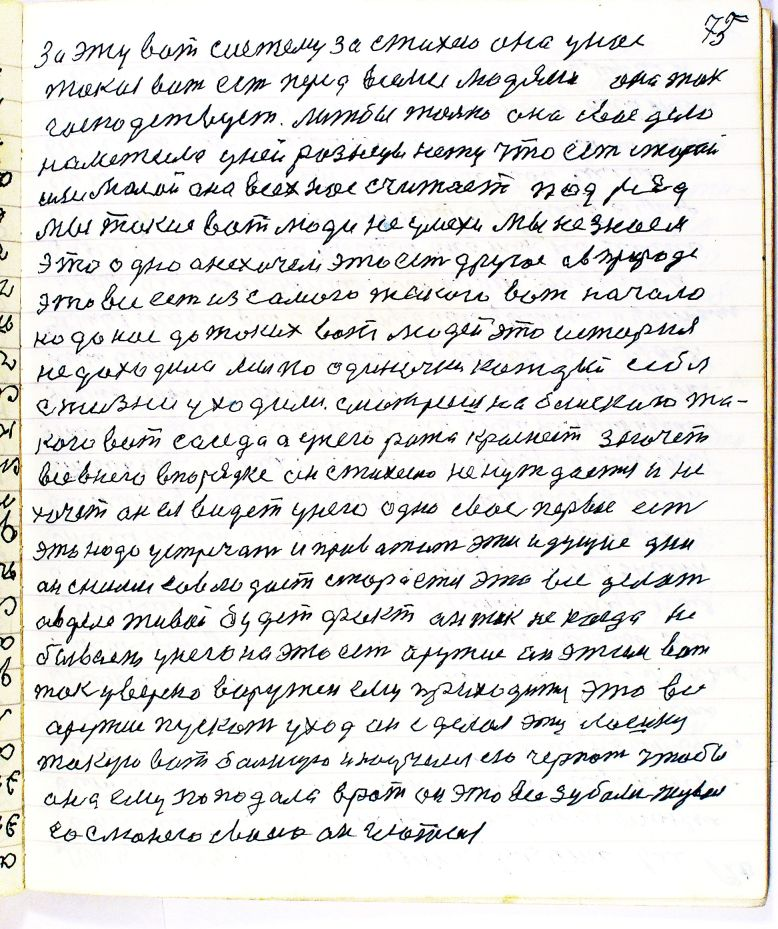 75
За эту вот систему за стихию она у нас
такая вот ест перед всеми людями она так
господствует. литбы толко она свое дело
наметила у ней разницы нету что ест старой
или малой она всех нас считает подряд
мы такие вот люди не умехи мы не знаем
это одно а не хочем это ест другое в природе
это все ест из самого такого вот начало
но до нас до таких вот людей это история
не доходила мы по одиночки каждый себя
с жизни уходили. смотриш на блиского та-
кого вот соседа а у него рожа краснеит значет
все в него впорядке он стихею не нуждается и не
хочет он ея видет у него одно свое первое ест
это надо устречат и провожат эти идущие дни
он сними совладает старается это все делат
в деле живой будет факт он так не когда не
бывает у него на это ест аружие он этим вот
так уверено воружен ему приходится это все
аружие пускат уход он сделал эту лошку
такую вот болшую и научился ею черпат чтобы
она ему попадала врот он это все зубами жувал
со смонего свое он глотал